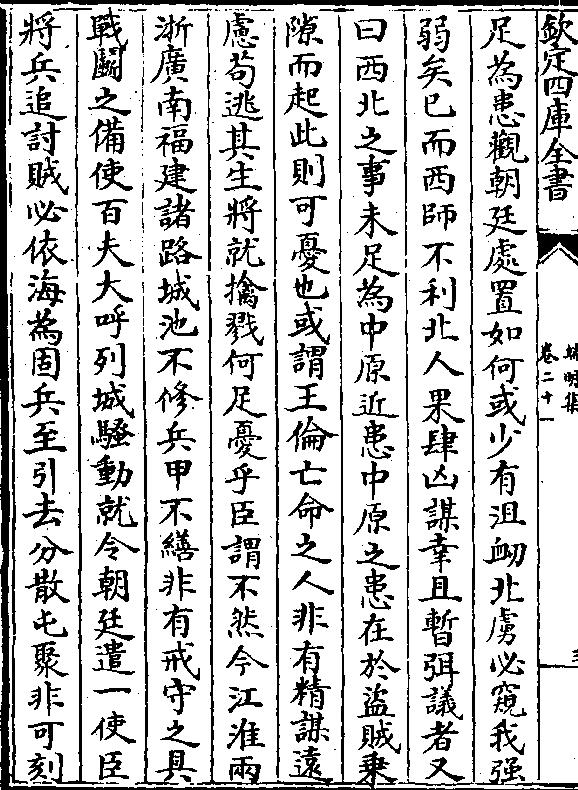 欽定四庫全書
端明集
卷二十一
足為患觀朝廷處置如何或少有沮衂北虜必窺我强
弱矣已而西師不利北人果肆凶謀幸且暫弭議者又
曰西北之事未足為中原近患中原之患在於盗賊乗
隙而起此則可憂也或謂王倫亡命之人非有精謀遠
慮茍逃其生將就擒戮何足憂乎臣謂不然今江淮兩
浙廣南福建諸路城池不修兵甲不繕非有戒守之具
戰鬬之備使百夫大呼列城騷動就令朝廷遣一使臣
將兵追討賊必依海為固兵至引去分散屯聚非可刻